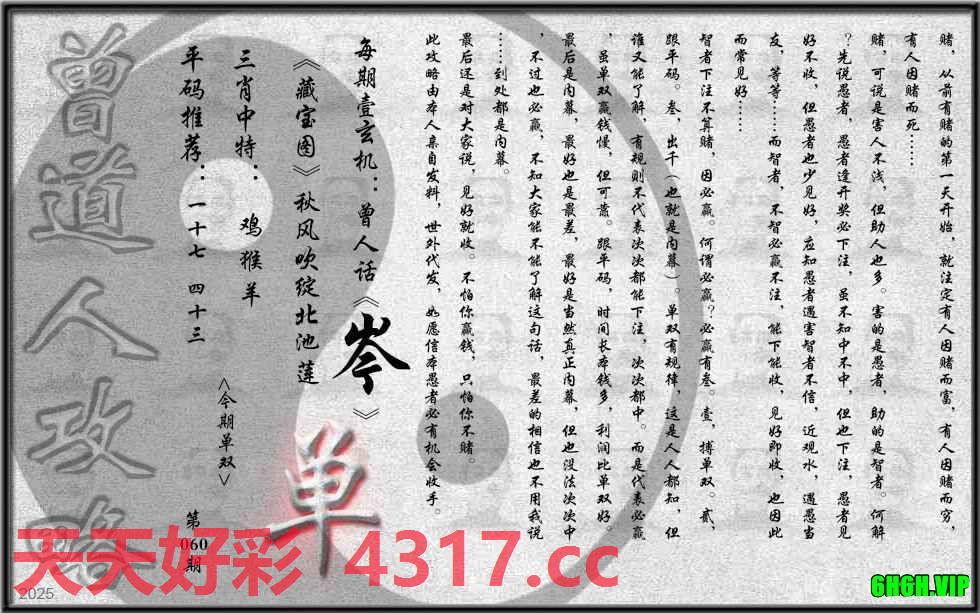 赌，从前有赌的第一天开始，就注定有人因赌而富，有人因赌而穷，
有人因赌而死……
赌，可说是害人不浅，但助人也多。害的是愚者，助的是智者。何解
？先说愚者，愚者逢开奖必下注，虽不知中不中，但也下注，愚者见
好不收，但愚者也少见好，应知愚者遇害智者不信，近观水，遇愚当
友，等等……而智者，不智必赢不注，能下能收，见好即收，也因此
而常见好……
智者下注不算赌，因必赢。何谓必赢？必赢有叁。壹，搏单双。贰，
跟平码。叁，出千（也就是内幕）。单双有规律，这是人人都知，但
谁又能了解，有规则不代表次次都能下注，次次都中。而是代表必赢
，虽单双赢钱慢，但可靠。跟平码，时间长本钱多，利润比单双好。
最后是内幕，最好也是最差，最好是当然真正内幕，但也没法次次中
，不过也必赢，不知大家能不能了解这句话，最差的相信也不用我说
……到处都是内幕。
最后还是对大家说，见好就收。不怕你赢钱，只怕你不赌。
此攻略由本人亲自发料，世外代发，如愿信本愚者必有机会收手。
每期壹玄机：曾人话《岑》
《藏宝图》秋风吹绽北池莲
单
三肖中特：鸡猴羊
<今期单双>
平码推荐：一十七 四十三
第060期
曾道人攻略
天天好彩 4317.cc
2025
6H6H.VIP